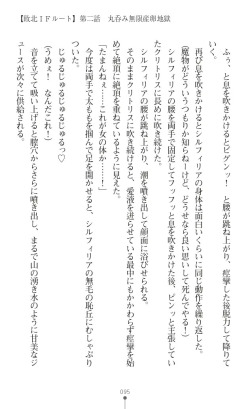 【敗北ＩＦルート】第二話　丸呑み無限産卵地獄
う、と息を吹きかけるとビグンッ！　と腰が跳ね上がり、痙攣後脱力して降りて
再び息を吹きかけるとシルフィリアの身体は面白いくらいに同じ動作を繰り返した。
（魔物がどういうつもりか知らねーけど、どうせなら良い思いして死んでやる！）
シルフィリアの腰を両手で固定してフッフッと息を吹きかけた後、ピンッと勃起し
たクリトリスに長めに吹き続けた。
シルフィリアの腰が跳ね上がり、潮を噴出して顔面に浴びせられる。
そのままクリトリスに吹き続けると、愛液を迸らせている最中にもかかわらず痙攣を始
めて絶頂に絶頂を重ねているように見えた。
（たまんねぇ、ここもいただくか！）
今度は両手で太ももを掴んで足を開かせると、シルフィリアの無毛の恥丘にむしゃぶり
ついた。
じゅるじゅるじゅるじゅるっ♡
（うめぇ！　なんだこれ！）
音を立てて吸い上げると膣穴からさらに噴き出し、まるで山の湧き水のように甘美なジ
ュースが次々に供給される。
095